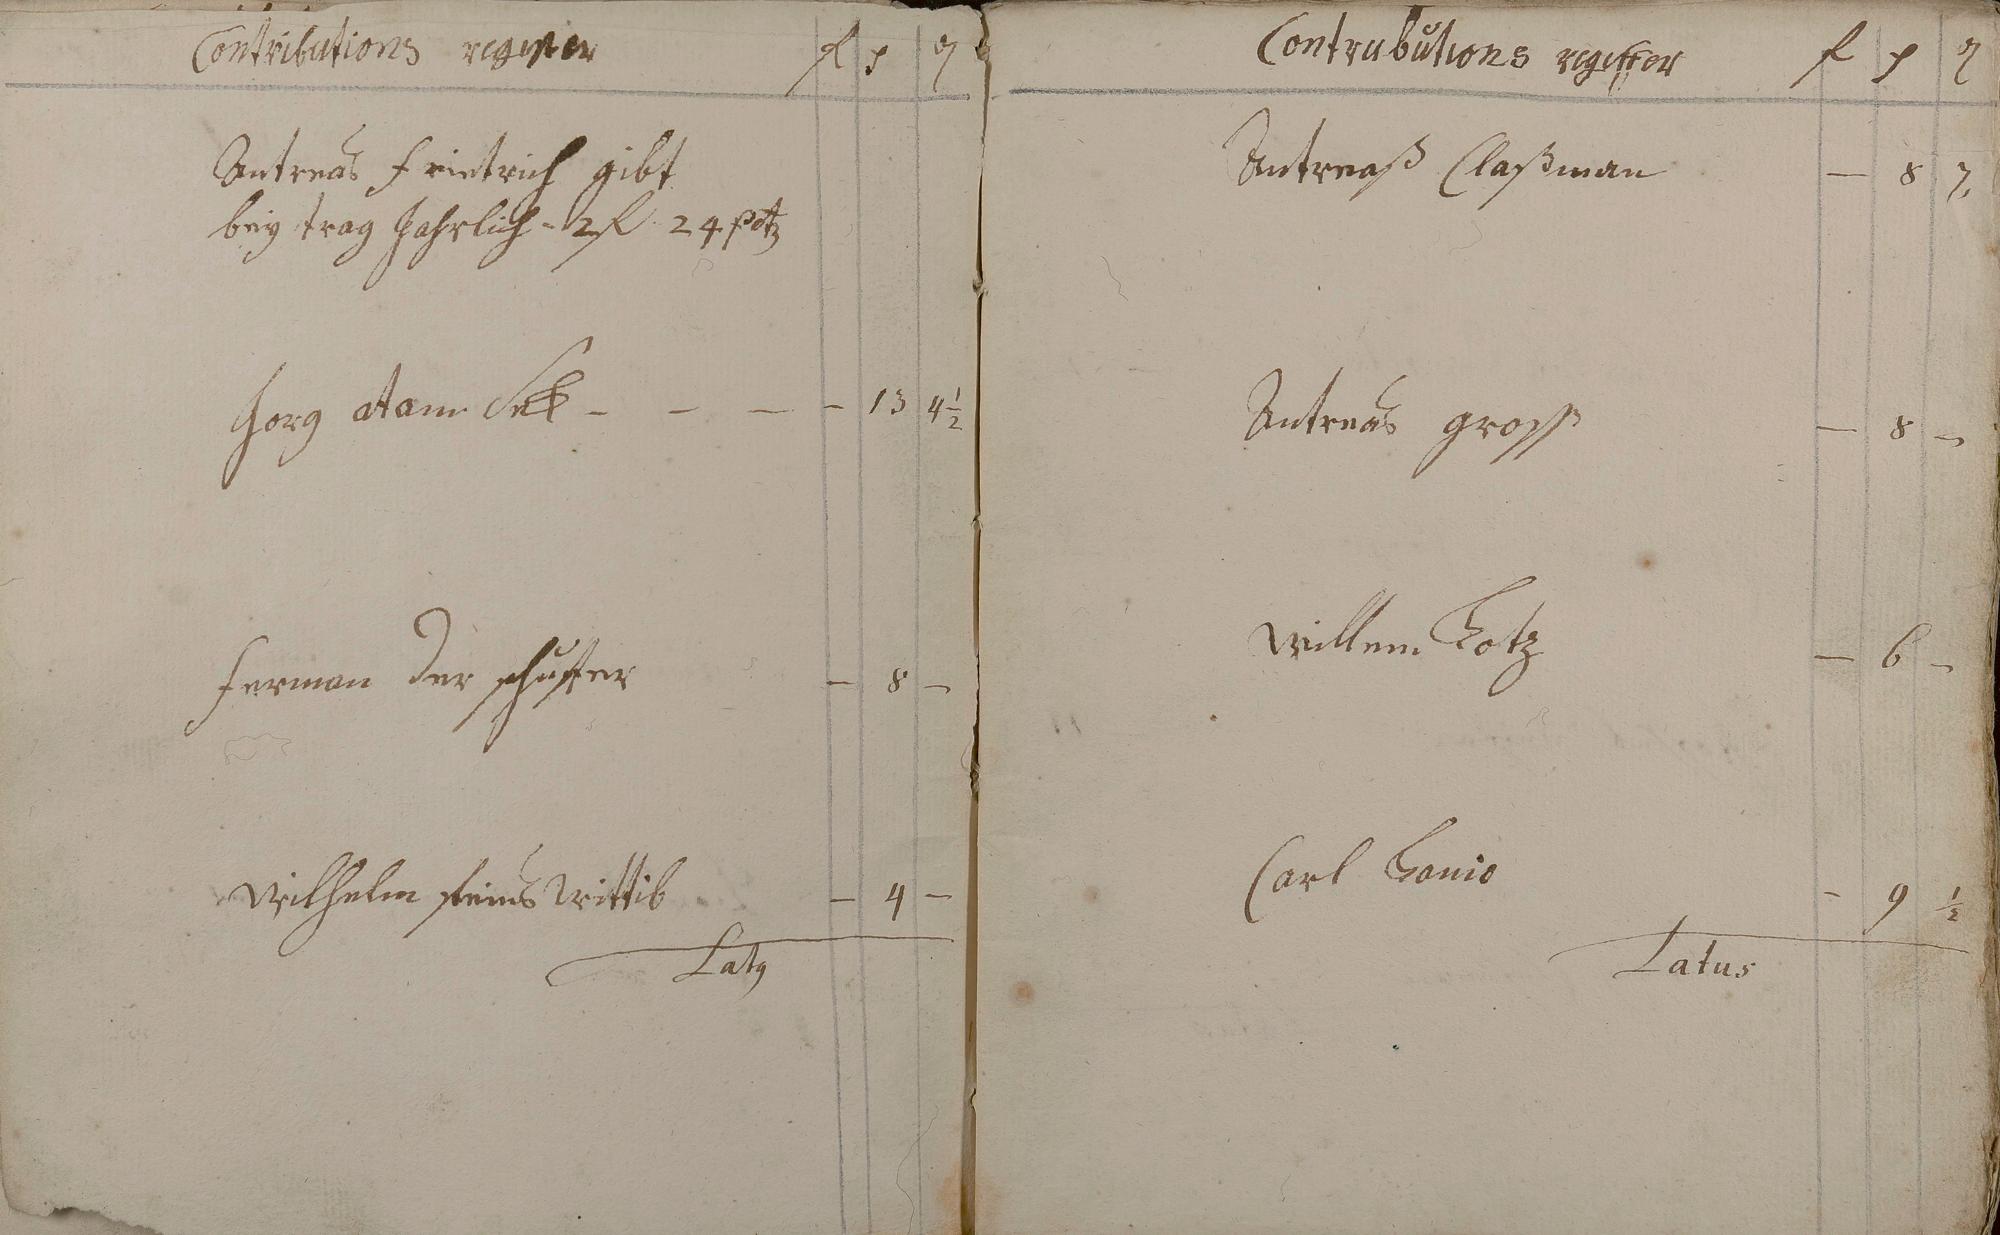 Contributions register f ß ₰
Antreas Frietrich gibt
beytrag Jahrlich - 2 f 24
Jorg atam - - - - 13 4 1/2
Herman Der schuster - 8 -
Wilhelm steins Wittib - 4 -
Latus
Contrubutions register f ß ₰
Antreaß Claßman - 8 7
Antreas gross - 8 -
Willem Lotz - 6 -
Carl - 9 1/2
Latus